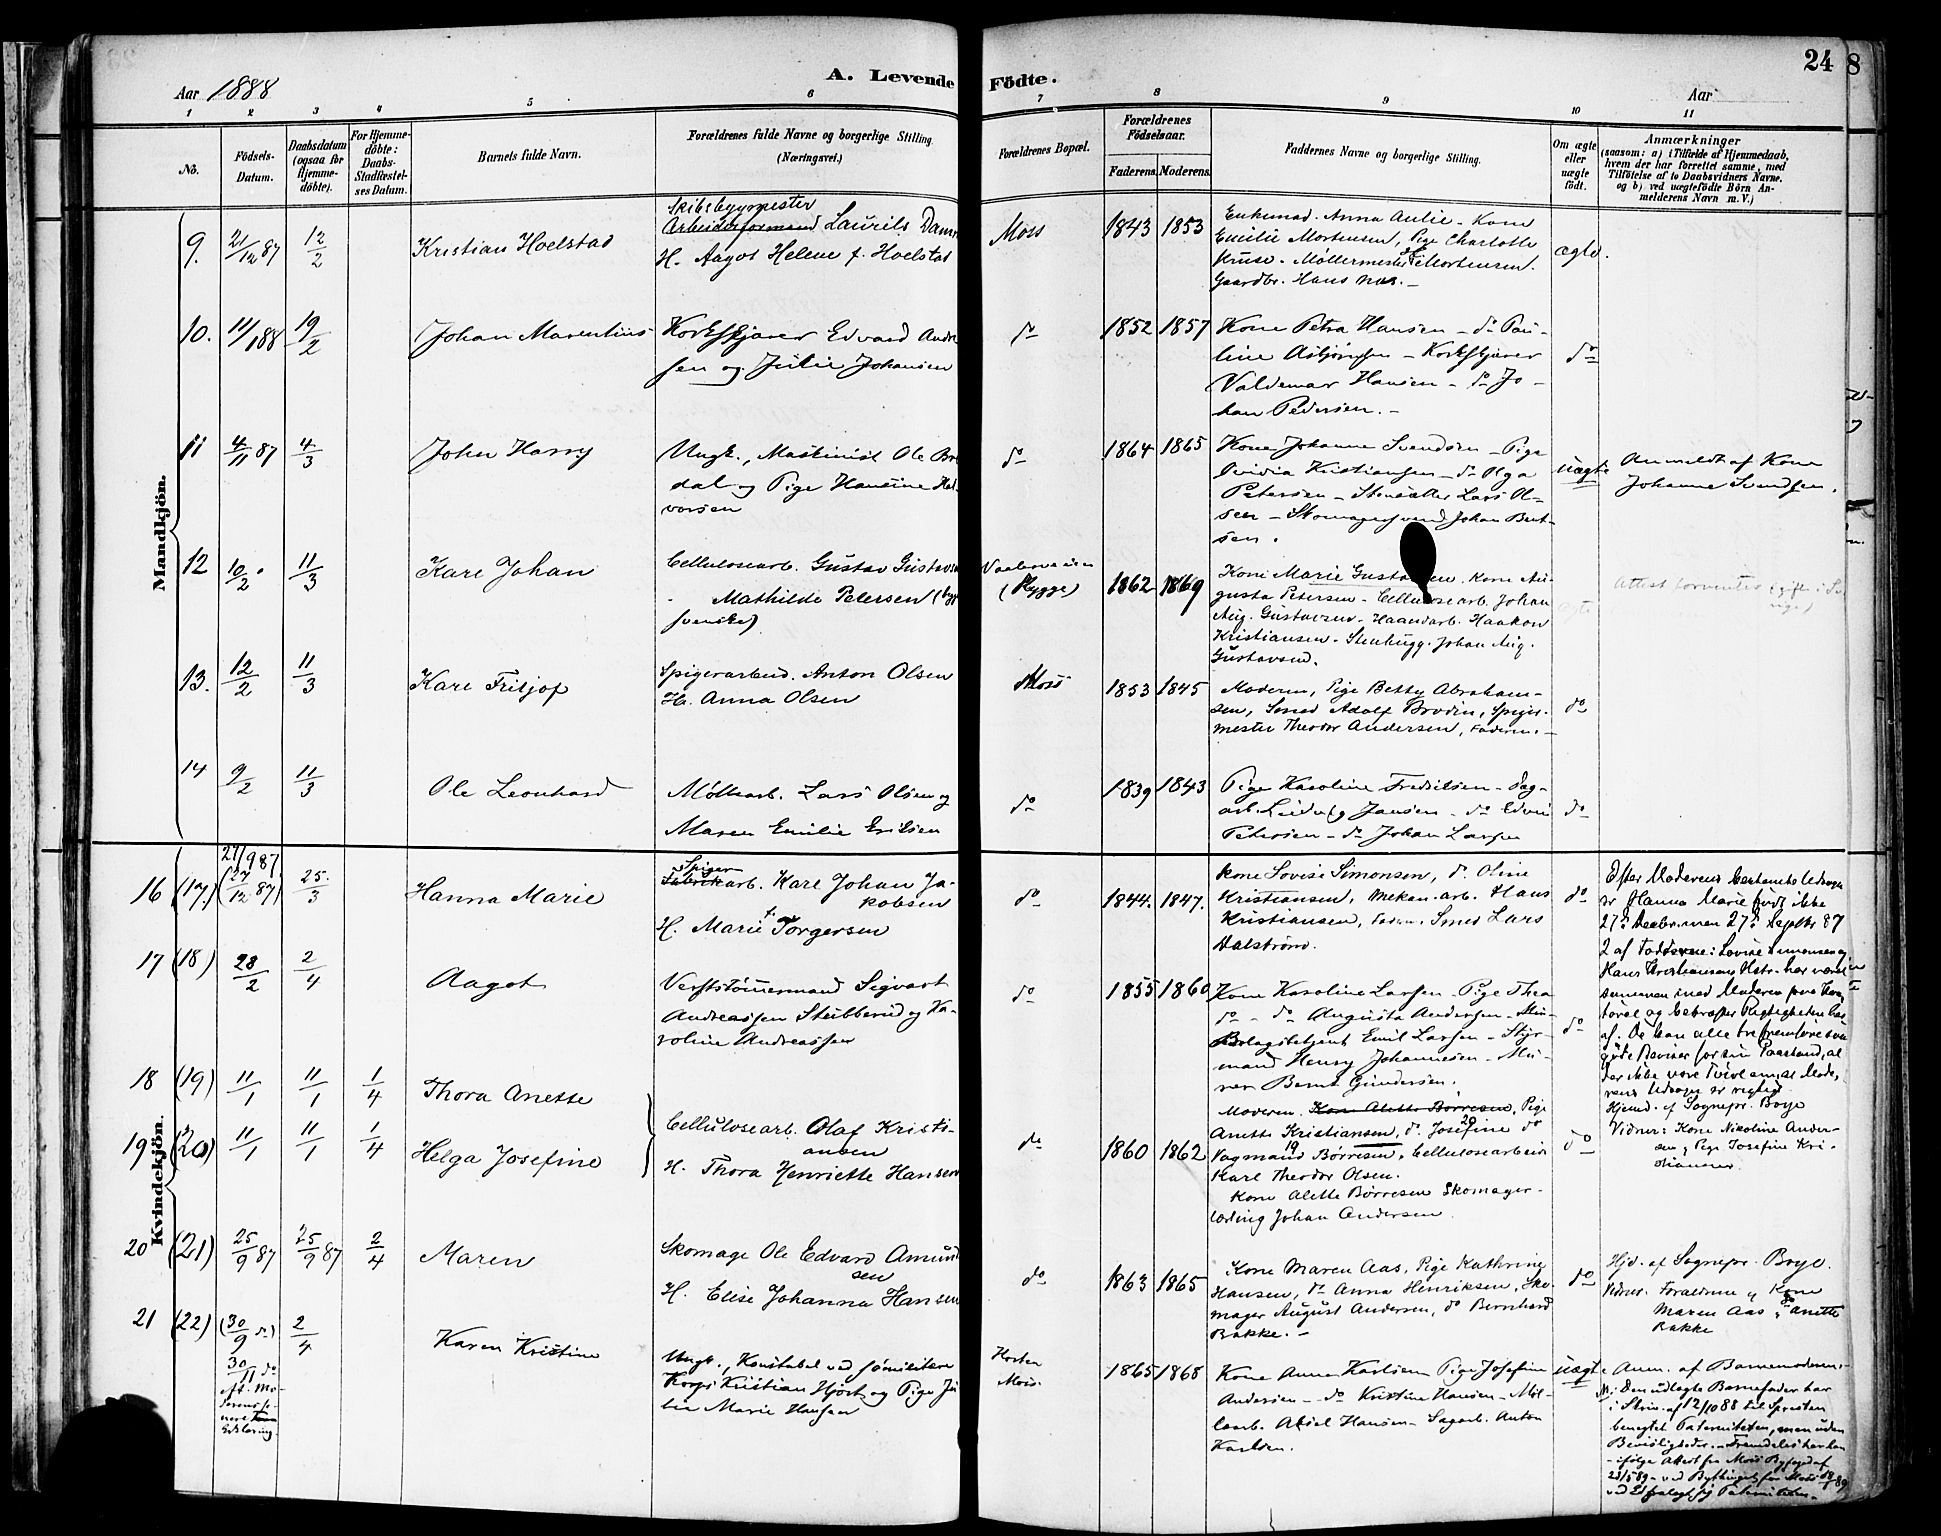 24
8
A. Levende Födte.
Aar 1888
Aar
1 2 3 4 5 6 7 8 9 10 11
No.
Födsels-Datum.
Daabsdatum (ogsaa för Hjemme-döbte).
For Hjemme-döbte: Daabs-Stadfæstel-ses Datum.
Barnets fulde Navn.
Forældrenes fulde Navne og borgerlige Stilling. (Næringsvei.)
Forældrenes Bopæl.
Forældrenes Födselsaar.
Faderens. Moderens.
Faddernes Navne og borgerlige Stilling.
Om ægte eller uægte födt.
Anmærkninger
(saasom: a) i Tilfælde af Hjemmedaab,
hvem der har forrettet samme, med
Tilföielse af to Daabsvidners Navne.
og b) ved uægtefödte Börn An-
melderens Navn m. V.)
Mandkjön.
9. 21/12 87 12/2
Kristian Hoelstad
Skibsbyggmester
Arbeidsformand Laurits
H. Aagot Helene f. Hoelstad
Moss
1843 1853
Enkemad. Anna Aulie - Kone
Emilie Mortensen, Pige Charlotte
Kruse - Møllermester Mortensen.
Gaardbr. Hans
ægte.
10. 11/1 88 19/2
Johan Marentius
Korkskjærer Edvard Andr
sen og Julie Johansen
do
1852 1857
Kone Petra Hansen - do Pau-
line Asbjørnsen - Korkskjærer
Valdemar Hansen - do Jo-
han Pedersen. -
do
11 4/11 87 4/3
John Harry
Ungk., Maskinist Ole
dal og Pige Hansine Hal-
vorsen
do
1864 1865
Kone Johanne Svendsen - Pige
Kristiansen - do Olga
Petersen - Lars Ol-
sen - Skomagersvend Johan Bent-
sen.
uægte
Anmeldt af Kone
Johanne Svendsen.
12 10/2 11/3
Karl Johan
Cellulosearb. Gustav Gustavs
Mathilde Petersen (begge
svenske)
(Rygge)
1862 1869
Kone Marie Gusta sen. Kone Au-
gusta Petersen - Cellulosearb. Johan
Aug. Gustavsen - Haandarb. Haakon
Kristiansen - Stenhugg. Johan Aug.
Gustavsen.
ægte
Attest forventes (gifte i Sv
rige)
13. 12/2 11/3
Karl Fritjof
Spigerarbeid. Anton Olsen
H. Anna Olsen
Moss
1853 1845
Moderen, Pige Betty Abraham-
sen, Smed Adolf Brodin, Spiger-
mester Theodor Andersen, Faderen. -
do
14 9/2 11/3
Ole Leonhard
Møllearb. Lars Olsen og
Maren Emilie Eriksen
do
1839 1843
Pige Karoline Fredriksen - Sag-
arb. Ludvig Jansen - do
Petersen - do Johan Larsen
do
Kvindekjön.
16 (17.) 27/9 87. (27/12 87) 25/3
Hanna Marie
Spiger
Fabrikarb. Karl Johan Ja-
kobsen
H. Marie f. Torgersen
do
1844. 1847.
Kone Lovise Simonsen, do Oline
Kristiansen, Mekan. arb. Hans
Kristiansen, Faderen, Smed Lars
Dalstrøm.
do
Efter Moderens bestemte Udsagn
er Hanna Marie født ikke
27de Decbr. men 27de Septbr 87
2 af Fadderne: Lovise Simonsen og
Hans Kristiansens Hstr. har været
sammen med Moderen
og bekræfter Rigtigheden her-
af. De kan alle tre fremføre saa
gode Beviser for sin Paastand, at
der ikke være Tvivl om, at Mode-
rens Udsagn er rigtig.
17 (18) 28/2 2/4
Aagot
Verftstømmermand Sigvart
Andreassen Stubberud og Ka-
roline Andreassen
do
1855 1860
Kone Karoline Larsen - Pige Thea
do - do Augusta Andersen -
Emil Larsen - Styr-
mand Henry Johannesen - Mu-
rer Bernt Gundersen.
do
18 (19) 11/1 11/1 1/4
Thora Anette
19 (20) 11/1 11/1 1/4
Helga Josefine
Cellulosearb. Olaf Kristi-
ansen
H. Thora Henriette Hansen
do
1860 1862
Moderen. Kone Alette Børresen, Pige
Anette Kristiansen, do Josefine do
Vagmand Børresen, Cellulosearbeider
Karl Theodor Olsen.
Kone Alette Børresen Skomager-
lærling Johan Andersen
do
Hjemd. af Sognepr. Boye
Vidner: Kone Nikoline Ander-
sen, Pige Josefine Kri-
stiansen.
20 (21) 25/9 87 25/9 87 2/4
Maren
Skomage Ole Edvard Amund
sen
H. Elise Johanna Hansen
do
1863 1865
Kone Maren Aas, Pige Kathrine
Hansen, do Anna Henriksen, Sko-
mager August Andersen, do Bernhard
Bakke. -
do
Hjd. af Sognepr. Boye.
Vidner. Forældrene og Kone
Maren Aas og do Anette
Bakke
21 (22) (30/9 do) 2/4
30/11 do
eft. Mo-
derens se-
nere
Erklæring.
Karen Kristine
Ungk., Konstabel ved Sømilitære
Korps Kristian Hjort og Pige Ju-
lie Marie Hansen
Horten
Moss.
1865 1868
Kone Anna Karlsen Pige Josefine
Andersen - do Kristine Hansen - Møl-
learb. Aksel Hansen - Sagarb. Anton
Karlsen.
uægte
Anm. af Barnemoderen.
Den udlagte Barnefader har
i Skriv. af 12/10 88 til Spresten
benegtet Paterniteten, men uden
Bevisligheder. - Fremdeles har han
- ifølge Attest fra Moss Byfoged af
23/5 89 - ved Bythinget for Moss
ved Ed fralagt sig Paterniteten.